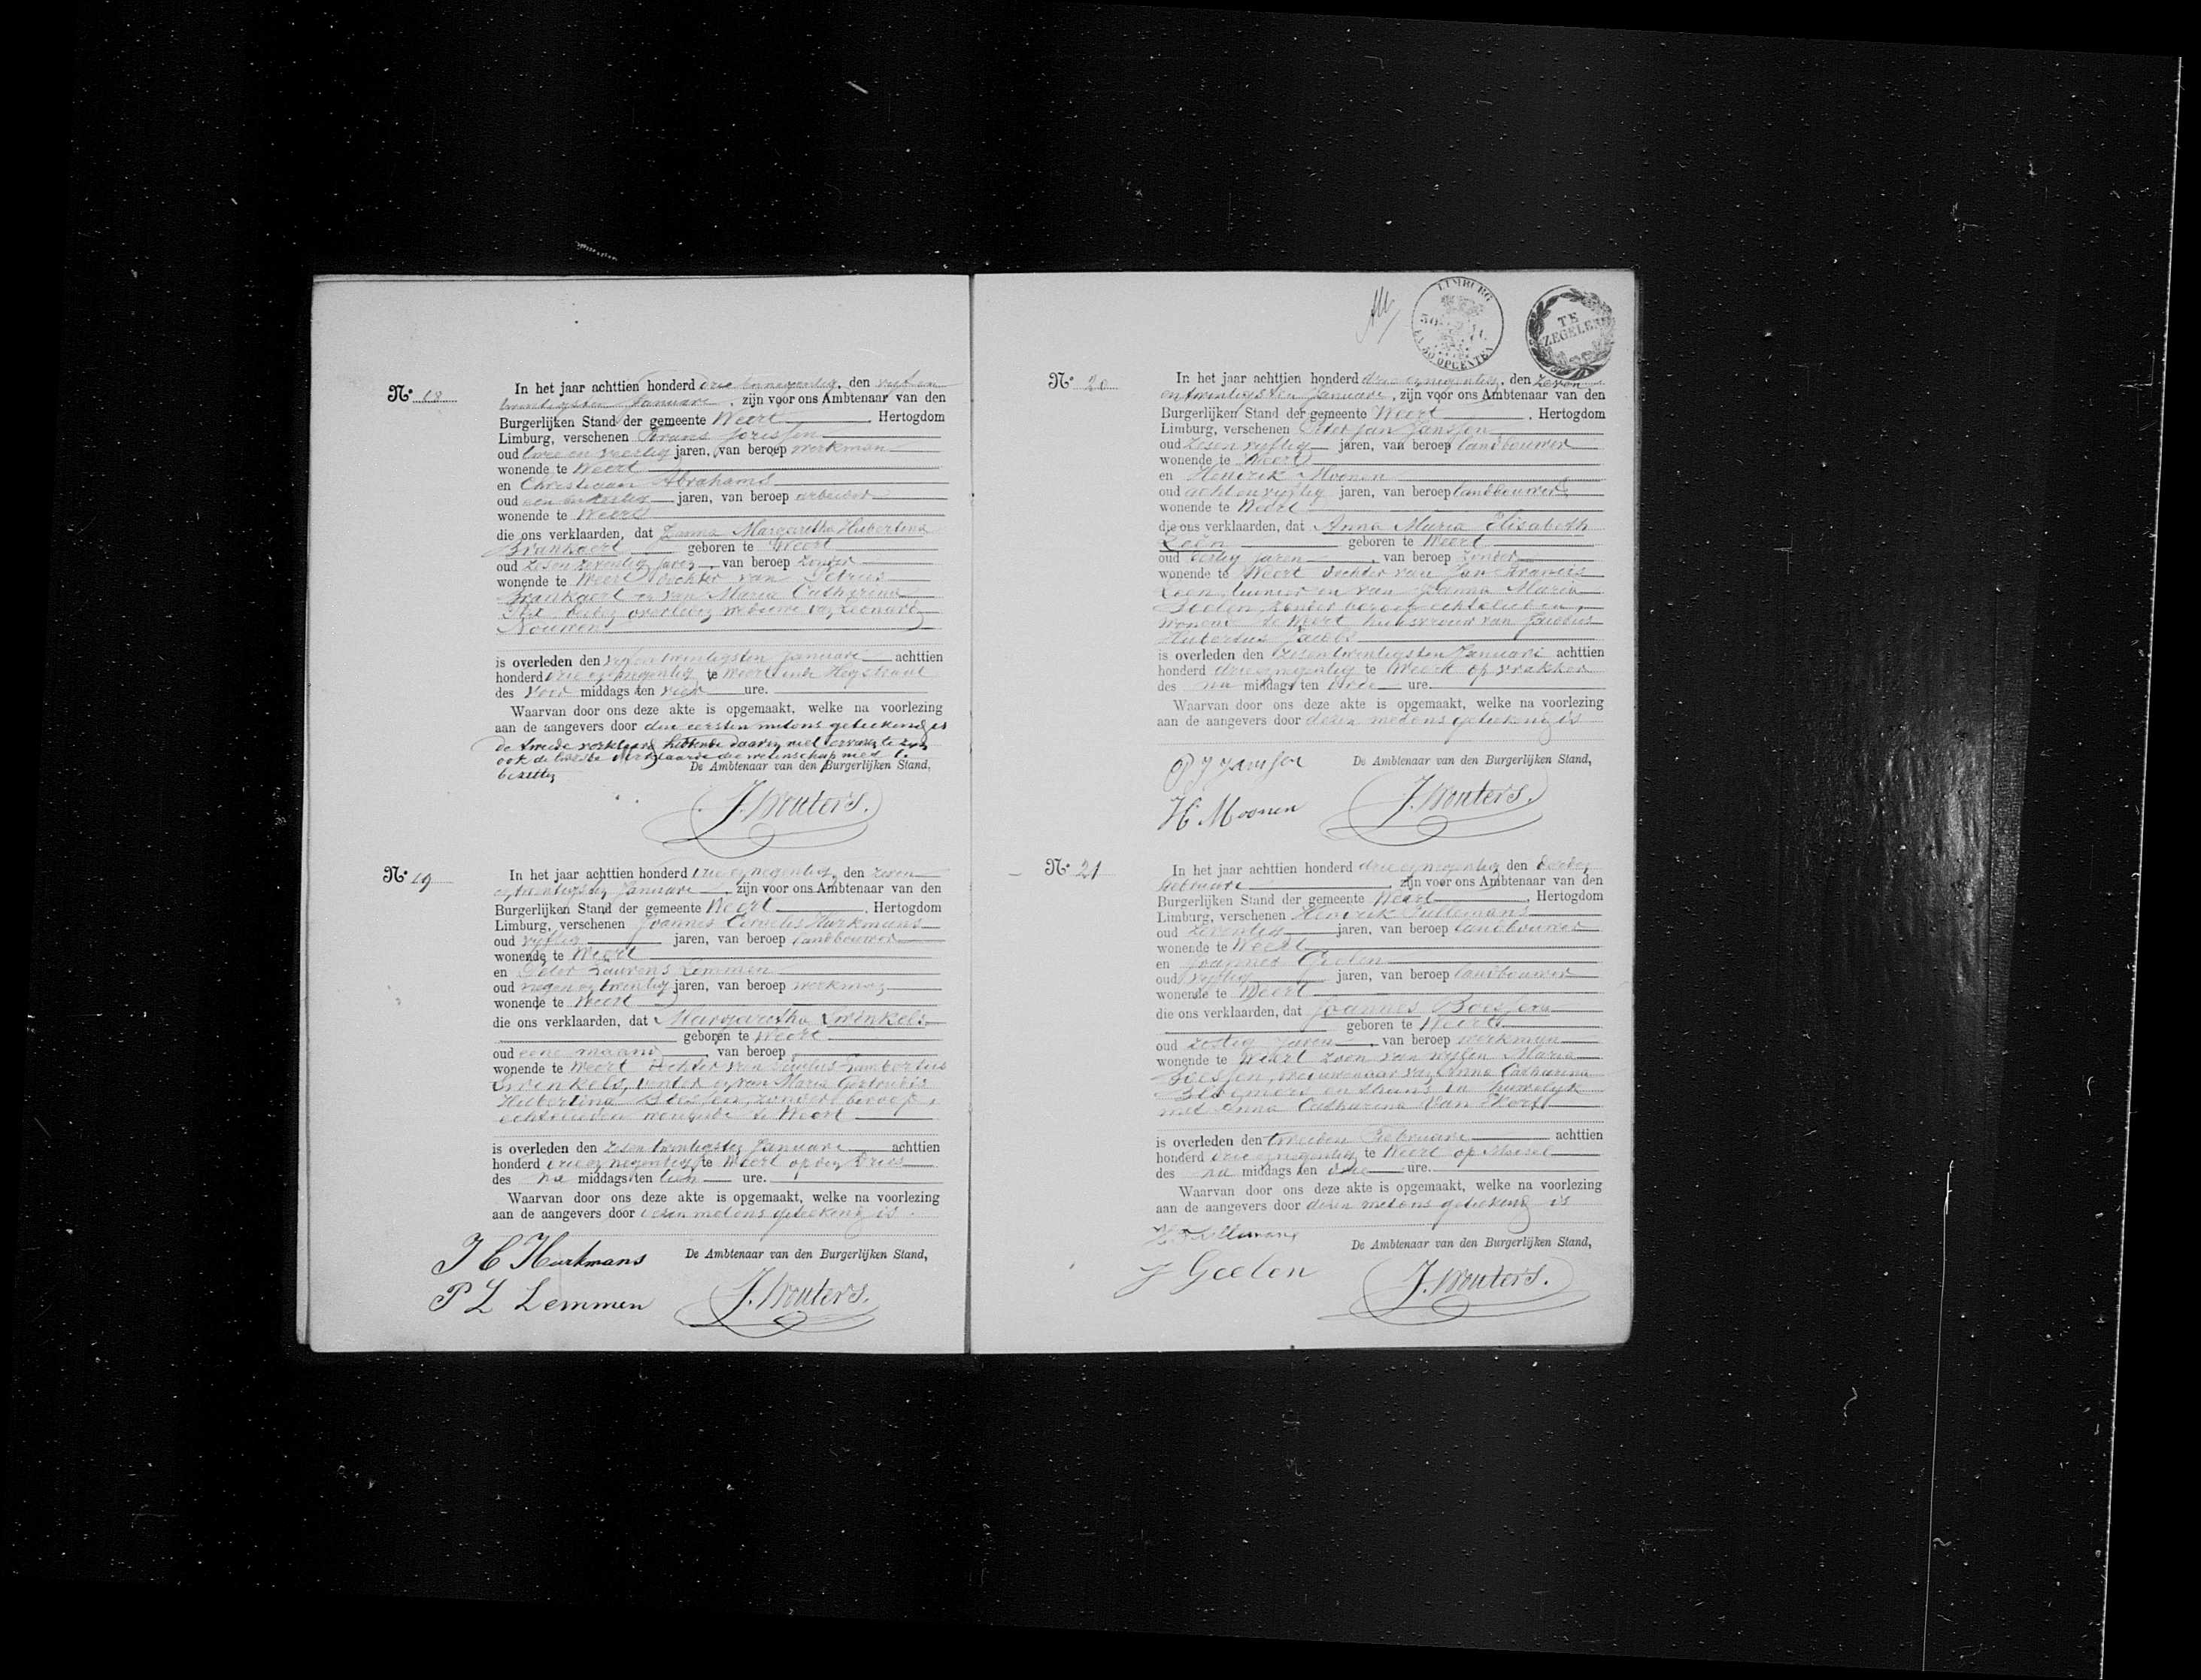 Nº 18
In het jaar achttien honderd drie en negentig, den vijf en
twintigsten Januari, zijn voor ons Ambtenaar van den
Burgerlijken Stand der gemeente Weert, Hertogdom
Limburg, verschenen Frans Jorissen
oud twee en veertig jaren, van beroep werkman
wonende te Weert
en Christiaan Abrahams
oud een en dertig jaren, van beroep arbeider
wonende te Weert
die ons verklaarden, dat Janna Margaretha Hubertina
Brankaert geboren te Weert
oud zesen zeventig jaren, van beroep zonder
wonende te Weert dochter van Petrus
Brankaert en van Maria Catharina
beiden overleden weduwe van Leonard
Nouwen
is overleden den vijfentwintigsten Januari achttien
honderd drie en negentig te Weert in de Hegstraat
des voor middags ten vier ure.
Waarvan door ons deze akte is opgemaakt, welke na voorlezing
aan de aangevers door den eersten met ons geteekend is
de tweede verklaarde daarin niet ervaren te zijn
ook de verklaarde die wetenschap niet te
bezitten
De Ambtenaar van den Burgerlijken Stand,
J. Wouters.
Nº 19
In het jaar achttien honderd drie en negentig, den zeven
en twintigsten Januari, zijn voor ons Ambtenaar van den
Burgerlijken Stand der gemeente Weert, Hertogdom
Limburg, verschenen Joannes Cornelis Hurkmans
oud vijftig jaren, van beroep landbouwer
wonende te Weert
en Peter Laurens Lemmen
oud negen en twintig jaren, van beroep werkman
wonende te Weert
die ons verklaarden, dat Margaretha Swinkels
geboren te Weert
oud eene maand, van beroep
wonende te Weert dochter van Lambertus
Swinkels, en van Maria Gertrudis
Hubertina zonder beroep,
echtelieden wonende te Weert
is overleden den zesen twintigsten Januari achttien
honderd drie en negentig te Weert op den Dries
des na middags ten tien ure.
Waarvan door ons deze akte is opgemaakt, welke na voorlezing
aan de aangevers door dezen met ons geteekend is.
De Ambtenaar van den Burgerlijken Stand,
J C Hurkmans
P L Lemmen
J. Wouters.
LIMBURG
50
EN 50 OPCENTEN
TE
ZEGELEN
Nº 20
In het jaar achttien honderd drie en negentig, den zeven
en twintigsten Januari, zijn voor ons Ambtenaar van den
Burgerlijken Stand der gemeente Weert, Hertogdom
Limburg, verschenen Peter Jan Janssen
oud zesen vijftig jaren, van beroep landbouwer
wonende te Weert
en Hendrik Moonen
oud acht en vijftig jaren, van beroep landbouwer
wonende te Weert
die ons verklaarden, dat Anna Maria Elisabeth
Koën geboren te Weert
oud dertig jaren, van beroep zonder
wonende te Weert dochter van Jan Francis
Koën, en van Janna Maria
Goelen, zonder beroep echtelieden,
wonende te Weert huisvrouw van Jacobus
Hubertus Jacobs
is overleden den zesen twintigsten Januari achttien
honderd drie en negentig te Weert op vrakker
des na middags ten drie ure.
Waarvan door ons deze akte is opgemaakt, welke na voorlezing
aan de aangevers door dezen met ons geteekend is
P J Janssen
De Ambtenaar van den Burgerlijken Stand,
H Moonen
J. Wouters.
Nº 21
In het jaar achttien honderd drie en negentig den derden
Februari zijn voor ons Ambtenaar van den
Burgerlijken Stand der gemeente Weert, Hertogdom
Limburg, verschenen Hendrik Tullemans
oud zeventig jaren, van beroep landbouwer
wonende te Weert
en Joannes Geelen
oud vijftig jaren, van beroep landbouwer
wonende te Weert
die ons verklaarden, dat Joannes Boessen
geboren te Weert
oud zestig jaren, van beroep werkman
wonende te Weert zoon van wijlen Maria
Boessen, weduwenaar van Anna Catharina
Bloemers en thans in huwelijk
met Anna Catharina Van
is overleden den tweeden Februari achttien
honderd drie en negentig te Weert op
des na middags ten drie ure.
Waarvan door ons deze akte is opgemaakt, welke na voorlezing
aan de aangevers door dezen met ons geteekend is
H. Tullemans
De Ambtenaar van den Burgerlijken Stand,
J Geelen
J. Wouters.